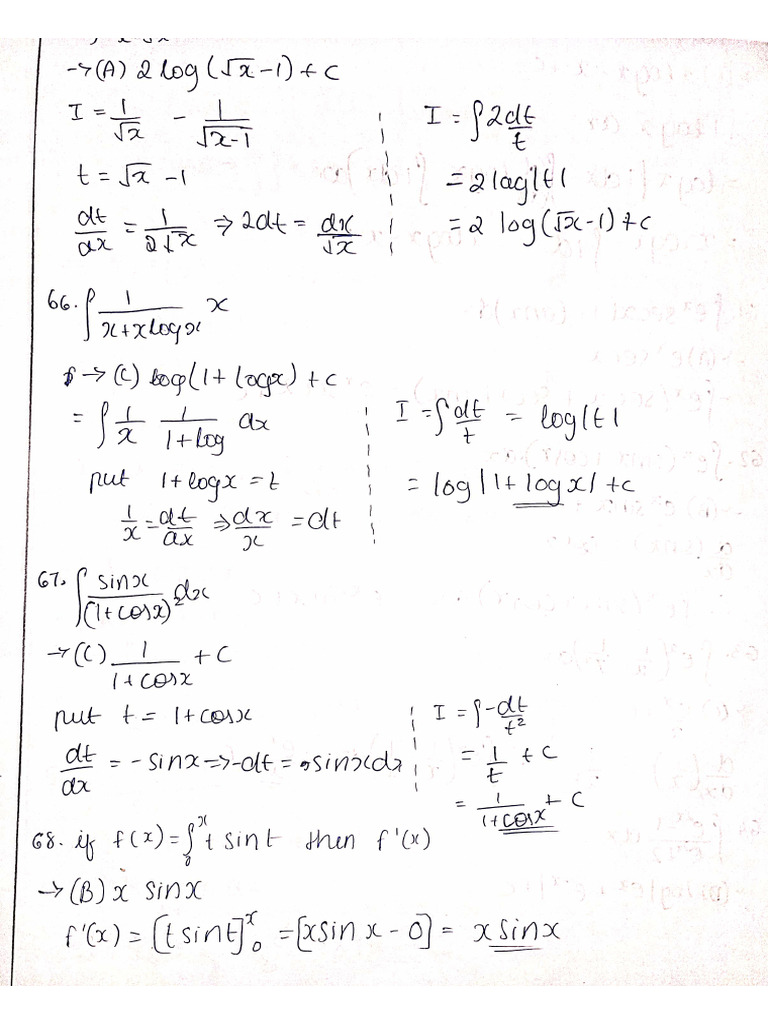 →(A) 2 log(√x-1)+c
I = 1/√x - 1/√x-1
t = √x -1
dt/dx = 1/2√x ⇒ 2dt = dx/√x
I = ∫2dt/t
= 2 log|t|
= 2 log(√x-1)+c
66. ∫ 1/x+xlogx x
→ (C) log(1+logx)+c
= ∫ 1/x 1/1+log dx
put 1+logx = t
1/x = dt/dx ⇒ dx/x = dt
I = ∫dt/t = log|t|
= log|1+logx|+c
67. ∫ sinx/(1+cosx)² dx
→ (C) 1/1+cosx + C
put t = 1+cosx
dt/dx = -sinx ⇒ -dt = sinxdx
I = ∫-dt/t²
= 1/t + C
= 1/1+cosx + C
68. if f(x) = ∫₀ˣ t sint then f'(x)
→ (B) x sinx
f'(x) = [t sint]ˣ₀ = [xsinx - 0] = x sinx